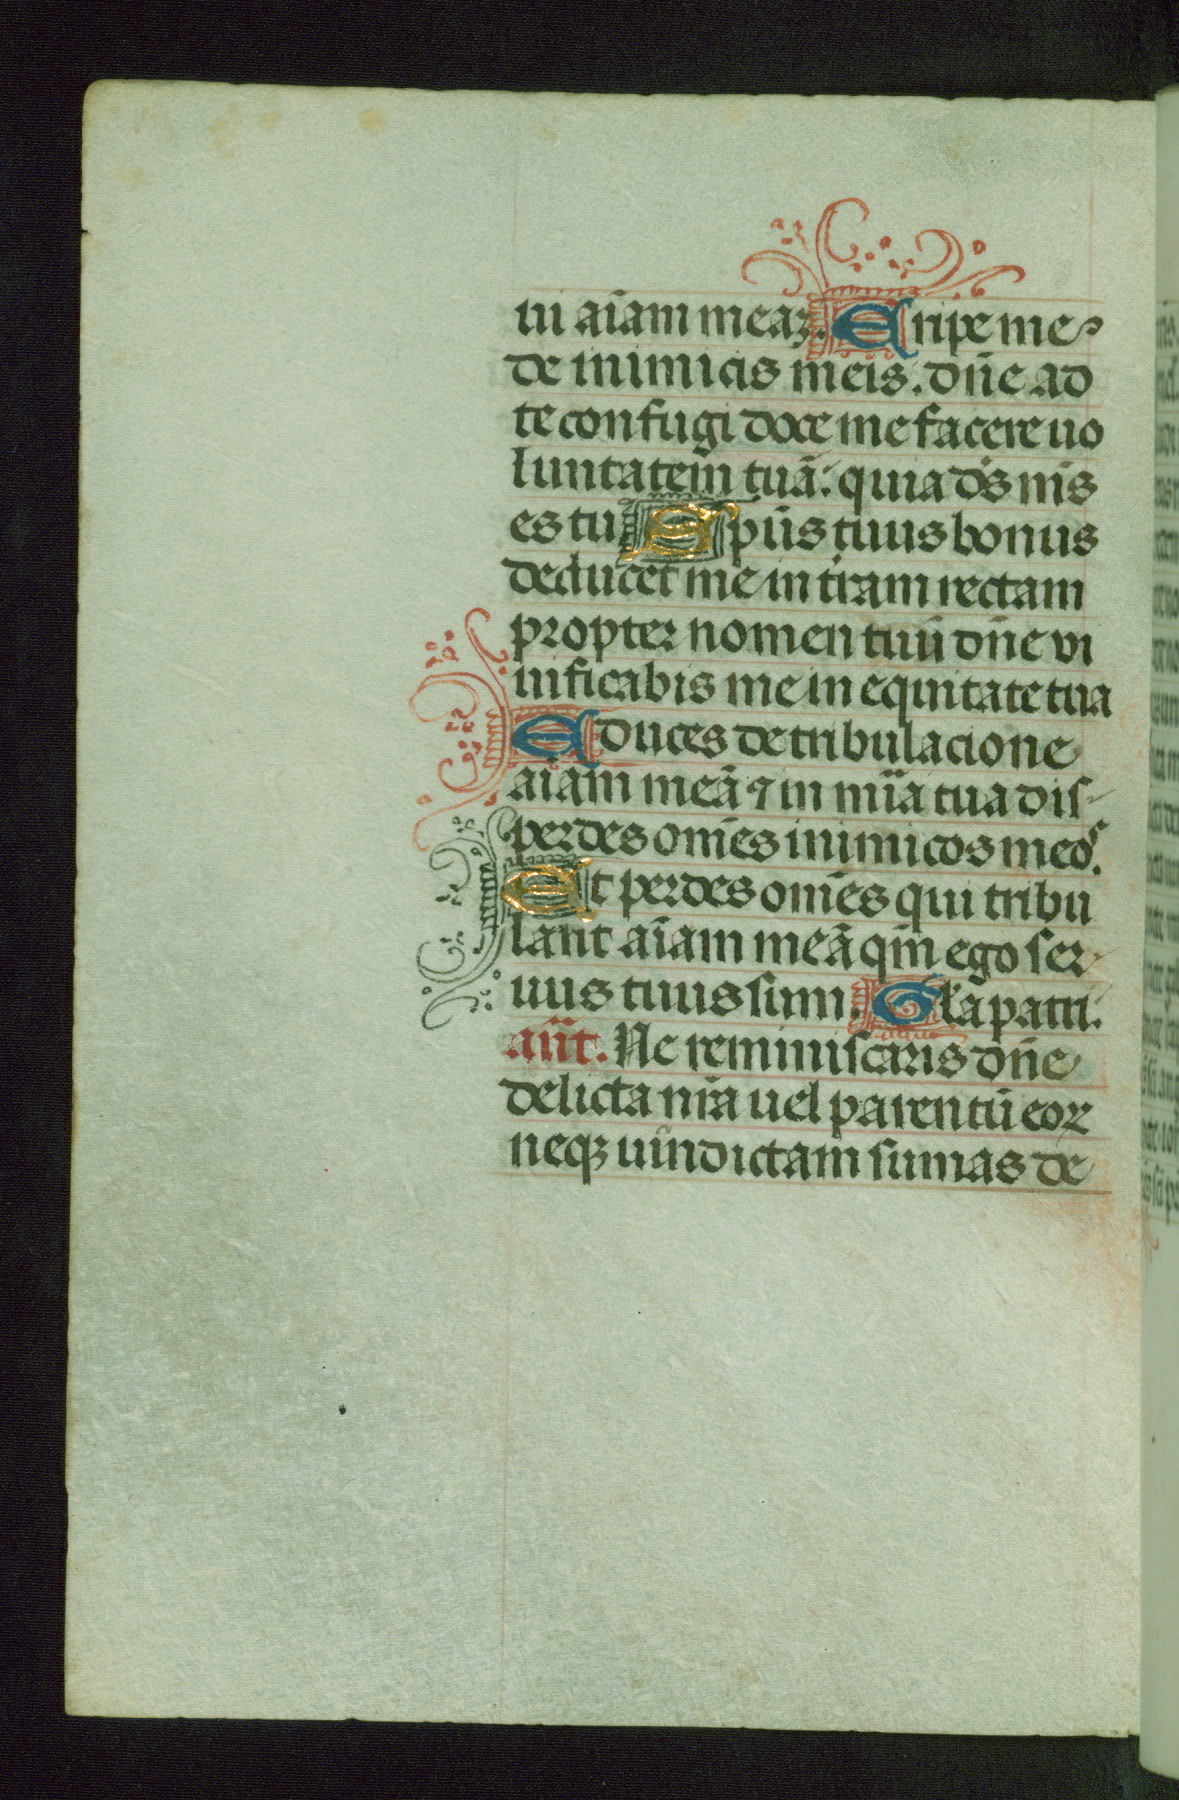 ui aīam meaʒ. Eripe me
de inimicis meis. dn̄e ad
te confugi doce me facere uo
luntatem̄ tuā: quia ds̄ ms̄
es tu Sp̄us tuus bonus
deducet me in tr̄am rectam
propter nomen tuū dn̄e vi
uificabis me in equitate tua
Educes de tribulacione
aīam meā ⁊ in mīa tua dis-
perdes om̄es inimicos meos.
Et perdes om̄es qui tribu
lant aīam meā qm̄ ego ser-
uus tuus sum. Gl̄a patri.
an̄t. Ne reminiscaris dn̄e
delicta nr̄a uel parentū eoꝝ
neqꝫ uindictam sumas de